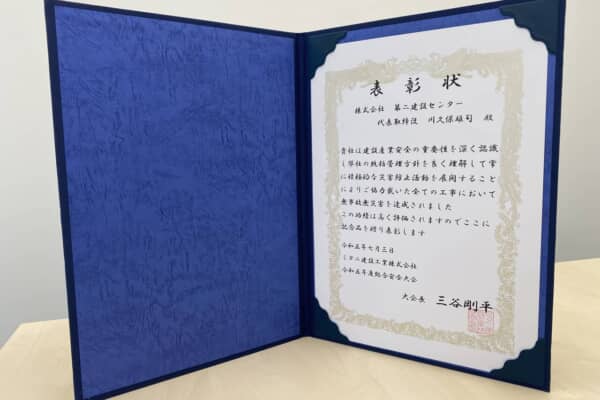 表彰状
株式会社 第二建設センター
代表取締役 川久保雄司 殿
貴社は建設産業安全の重要性を深く認識
し弊社の統括管理方針を良く理解して常
に積極的な災害防止活動を展開すること
によりご協力戴いた全ての工事において
無事故無災害を達成されました
この功績は高く評価されますのでここに
記念品を贈り表彰します
令和五年七月三日
ミタニ建設工業株式会社
令和五年度総合安全大会
大会長 三谷剛平